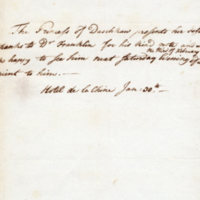 The Princess of Daschkaw presents her
thanks to Dr Franklin for his kind note and
the third of February
happy to see him next Saturday Evening if
nient to him. —
Hotel de la Chine Jan: 20th —